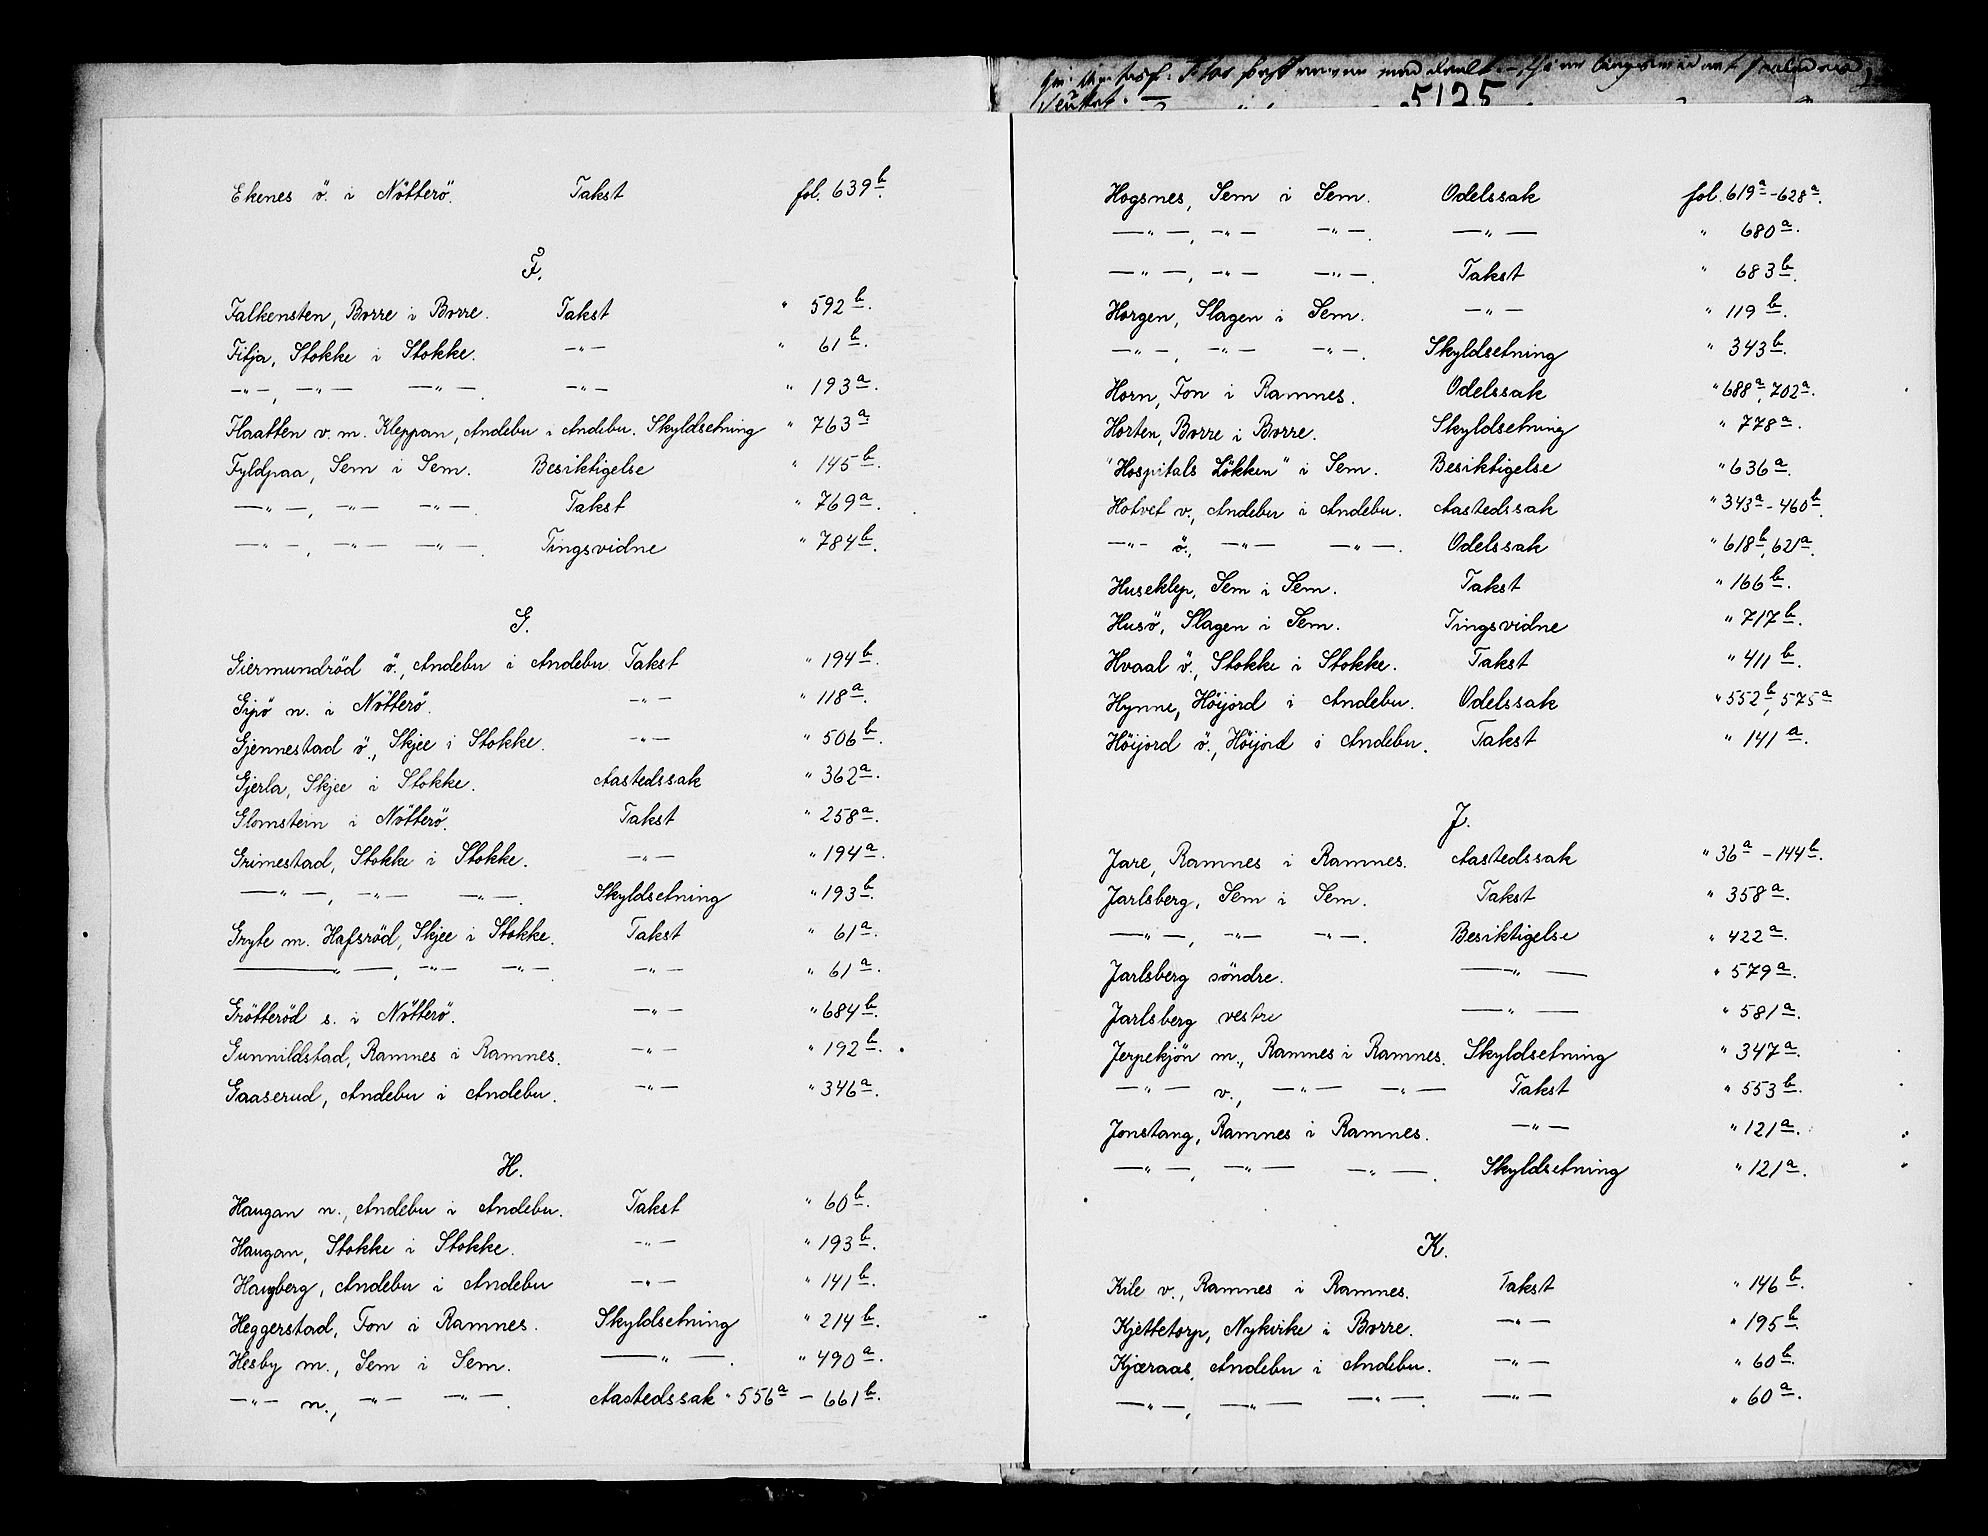 Ekenes ö. i Nötterö. Takst fol. 639b.
F.
Falkensten, Borre i Borre. Takst " 592b.
Fitja, Stokke i Stokke. —"— " 61b.
—"—, —"— —"—. —"— " 193a.
Flaatten v. m. Kleppan, Andebu i Andebu. Skyldsetning " 763a.
Fyldpaa, Sem i Sem. Besiktigelse " 145b.
—"—, —"— —"—. Takst " 769a.
—"—, —"— —"—. Tingsvidne " 784b.
G.
Giermundröd ö., Andebu i Andebu. Takst " 194b.
Gipö n. i Nötterö. —"— " 118a.
Gjennestad ö., Skjee i Stokke. —"— " 506b.
Gjerla, Skjee i Stokke. Aastedssak " 362a.
Glomstein i Nötterö. Takst " 258a.
Grimestad, Stokke i Stokke. —"— " 194a.
—"—, —"— —"—. Skyldsetning " 193b.
Gryte m. Hafsröd, Skjee i Stokke. Takst " 61a.
—"—, —"— —"—. —"— " 61a.
Grötteröd s. i Nötterö. —"— " 684b.
Gunnildstad, Ramnes i Ramnes. —"— " 192b.
Gaaserud, Andebu i Andebu. —"— " 346a.
H.
Haugan n., Andebu i Andebu. Takst " 60b.
Haugan, Stokke i Stokke. —"— " 193b.
Haugberg, Andebu i Andebu —"— " 141b.
Heggerstad, Fon i Ramnes. Skyldsetning " 214b.
Hesby m., Sem i Sem. —"—. " 490a.
—"— n., —"— —"—. Aastedssak " 556a — 661b.
5125
Hogsnes, Sem i Sem. Odelssak fol. 619a-628a.
—"—, —"— —"—. —"— " 680a.
—"—, —"— —"—. Takst " 683b.
Horgen, Slagen i Sem. —"— " 119b.
—"—, —"— —"—. Skyldsetning " 343b.
Horn, Fon i Ramnes. Odelssak " 688a, 702a.
Horten, Borre i Borre. Skyldsetning " 778a.
"Hospitals Lökken" i Sem. Besiktigelse " 636a.
Hotvet v., Andebu i Andebu. Aastedssak " 343a-460b.
—"— ö., —"— —"—. Odelssak " 618b, 621a.
Huseklep, Sem i Sem. Takst " 166b.
Husö, Slagen i Sem. Tingsvidne " 717b.
Hvaal ö., Stokke i Stokke. Takst " 411b.
Hynne, Höijord i Andebu. Odelssak " 552b, 575a
Höijord ö., Höijord i Andebu. Takst " 141a.
J.
Jare, Ramnes i Ramnes. Aastedssak " 36a — 144b.
Jarlsberg, Sem i Sem. Takst " 358a.
—"—, —"— —"—. Besiktigelse " 422a.
Jarlsberg söndre. —"— " 579a.
Jarlsberg vestre —"— " 581a.
Jerpekjön m., Ramnes i Ramnes. Skyldsetning " 347a.
—"— v., —"— —"— Takst " 553b.
Jonstang, Ramnes i Ramnes. —"— " 121a.
—"—, —"— —"—. Skyldsetning " 121a.
K.
Kile v., Ramnes i Ramnes. Takst " 146b.
Kjettetorp, Nykvike i Borre. —"— " 195b.
Kjæraas, Andebu i Andebu. —"— " 60b.
—"—, —"— —"—. —"— " 60a.